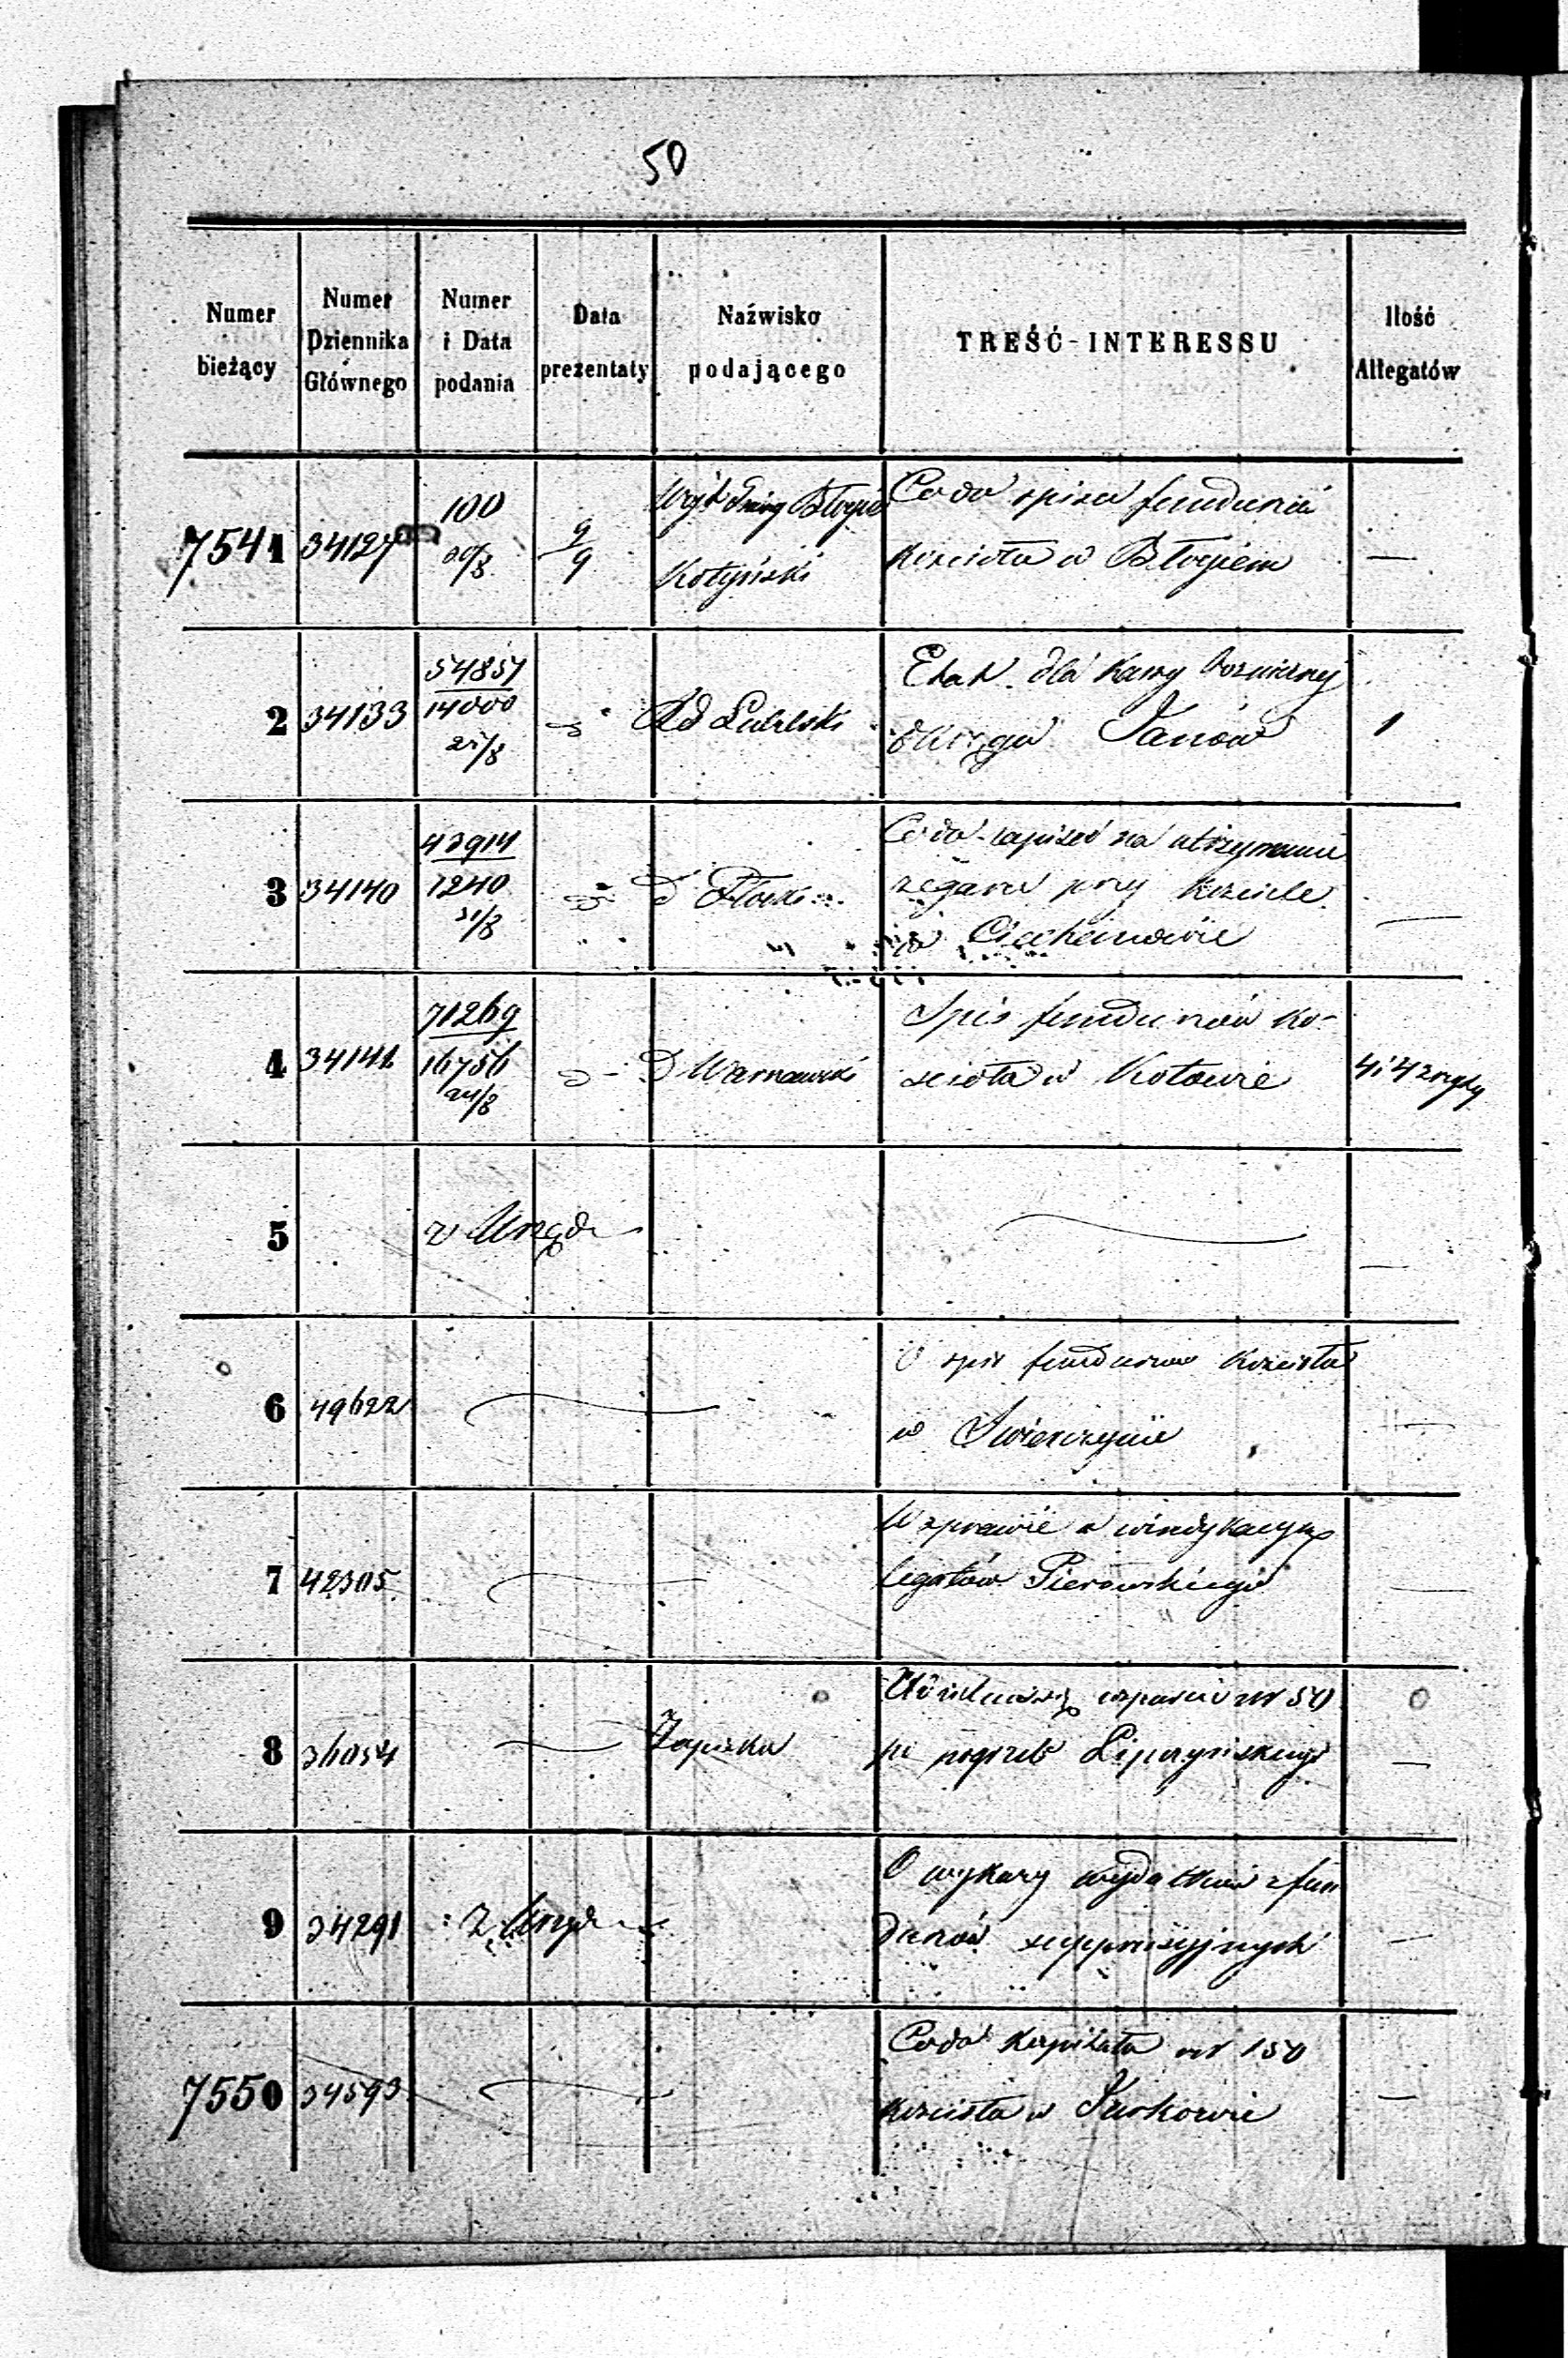 50
Numer bieżący
Numer Dziennika Głównego
Numer i Data podania
Data prezentaty
Naźwisko podającego
TREŚĆ INTERESSU
Ilość Allegatów
7541 34127 100 30/8 9/9 Wójt Gminy Kotyński Co do spisu funduszów —
kościoła w
2 34133 54857 14000 25/8 Rd Lubelski Etat dla Kassy 1
okręgu Janów
3 34140 43914 1240 31/8 D Płocki Co do zapisu na utrzymanie —
zegaru przy kościele
w Ciechanowie
4 34141 71269 16756 24/8 D Warszawski Spis funduszów ko-
ścioła w Kotowie 4 i 4
5 z Urzędu —
6 49622 O spis funduszów kościoła —
w Swierczynie
7 42305 W sprawie o windykacyę —
legatów Pierowskiego
8 36054 Zapiska wsparcia 50 —
pogrzeb Lipczyńskiego
9 34291 z Urzędu O wykazy wydatków z fun —
duszów suppressyjnych
7550 34593 Co do kapitału 150 —
kościoła w Turkowie